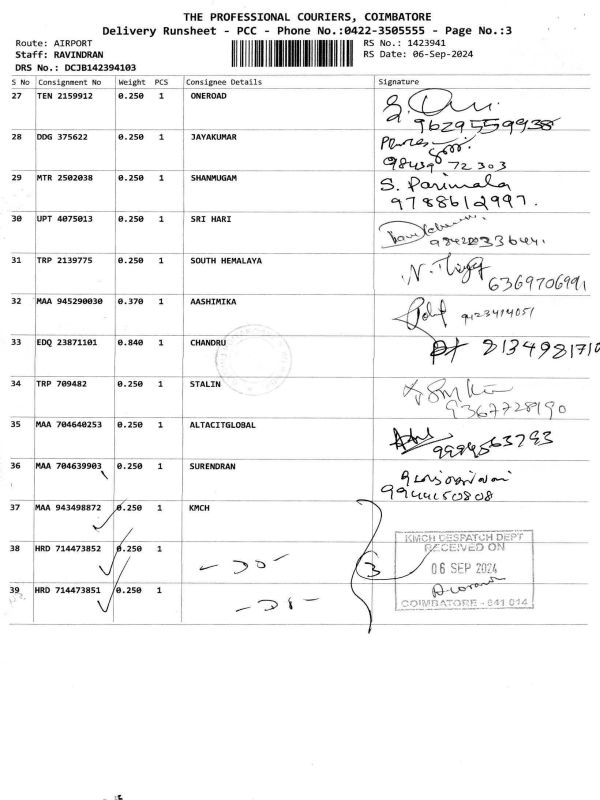 THE PROFESSIONAL COURIERS, COIMBATORE
Delivery Runsheet - PCC - Phone No.:0422-3505555 - Page No.:3
Route: AIRPORT RS No.: 1423941
Staff: RAVINDRAN RS Date: 06-Sep-2024
DRS No.: DCJB142394103
S No Consignment No Weight PCS Consignee Details Signature
27 TEN 2159912 0.250 1 ONEROAD
9629559938
28 DDG 375622 0.250 1 JAYAKUMAR
98439 72303
29 MTR 2502038 0.250 1 SHANMUGAM S. Parimala
9788612997.
30 UPT 4075013 0.250 1 SRI HARI
31 TRP 2139775 0.250 1 SOUTH HEMALAYA
6369706991
32 MAA 945290030 0.370 1 AASHIMIKA 9123414051
33 EDQ 23871101 0.840 1 CHANDRU 8134981710
34 TRP 709482 0.250 1 STALIN
9367728190
35 MAA 704640253 0.250 1 ALTACITGLOBAL
36 MAA 704639903 0.250 1 SURENDRAN
9944150808
37 MAA 943498872 0.250 1 KMCH
38 HRD 714473852 0.250 1 3
39 HRD 714473851 0.250 1
KMCH DESPATCH DEPT
RECEIVED ON
06 SEP 2024
COIMBATORE - 641 014